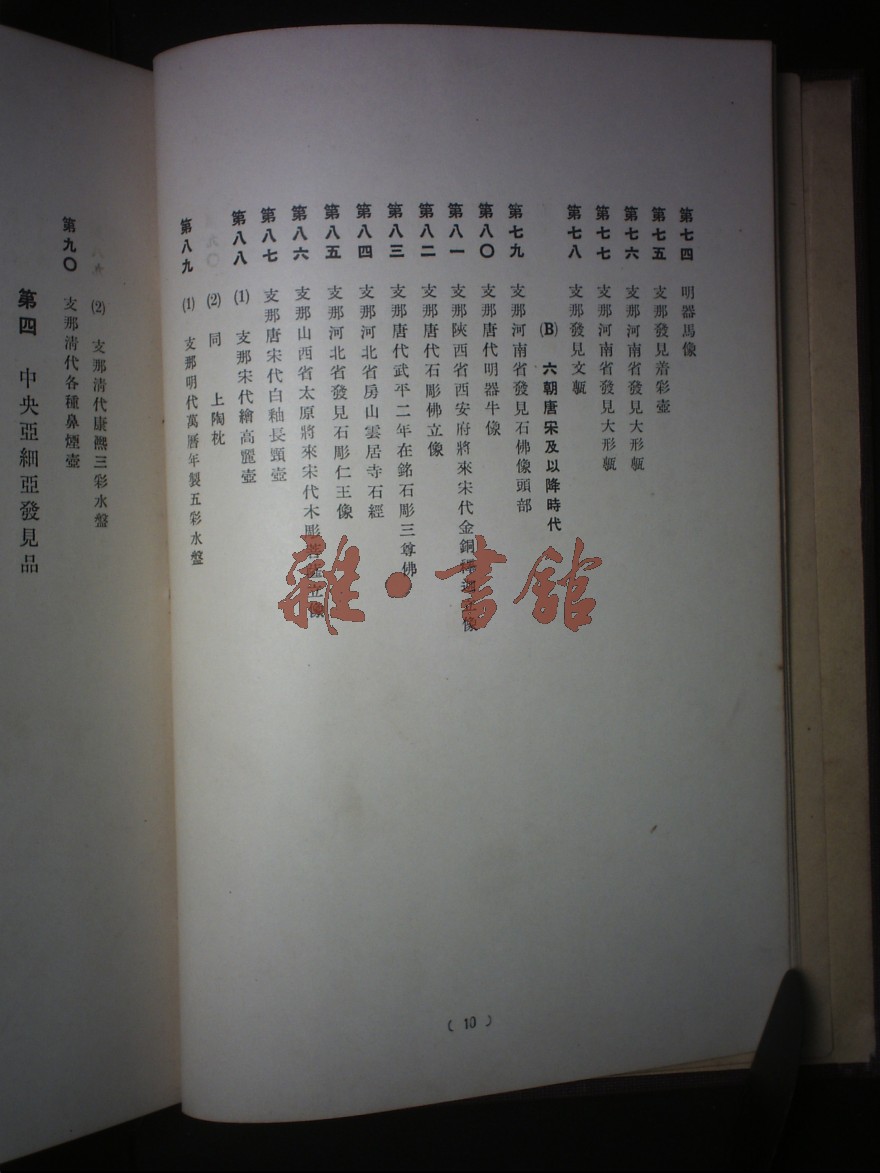 第七四 明器馬像
第七五 支那發見着彩壺
第七六 支那河南省發見大形甎
第七七 支那河南省發見大形甎
第七八 支那發見文甎
(B) 六朝唐宋及以降時代
第七九 支那河南省發見石佛像頭部
第八〇 支那唐代明器牛像
第八一 支那陝西省西安府將來宋代金銅釋迦立像
第八二 支那唐代石彫佛立像
第八三 支那唐代武平二年在銘石彫三尊佛
第八四 支那河北省房山雲居寺石經
第八五 支那河北省發見石彫仁王像
第八六 支那山西省太原將來宋代木彫菩薩立像
第八七 支那唐宋代白釉長頸壺
第八八 (1) 支那宋代繪高麗壺
(2) 同 上陶枕
第八九 (1) 支那明代萬曆年製五彩水盤
(2) 支那清代康熙三彩水盤
第九〇 支那清代各種鼻煙壺
第四 中央亞細亞發見品
(10)
雜·書館